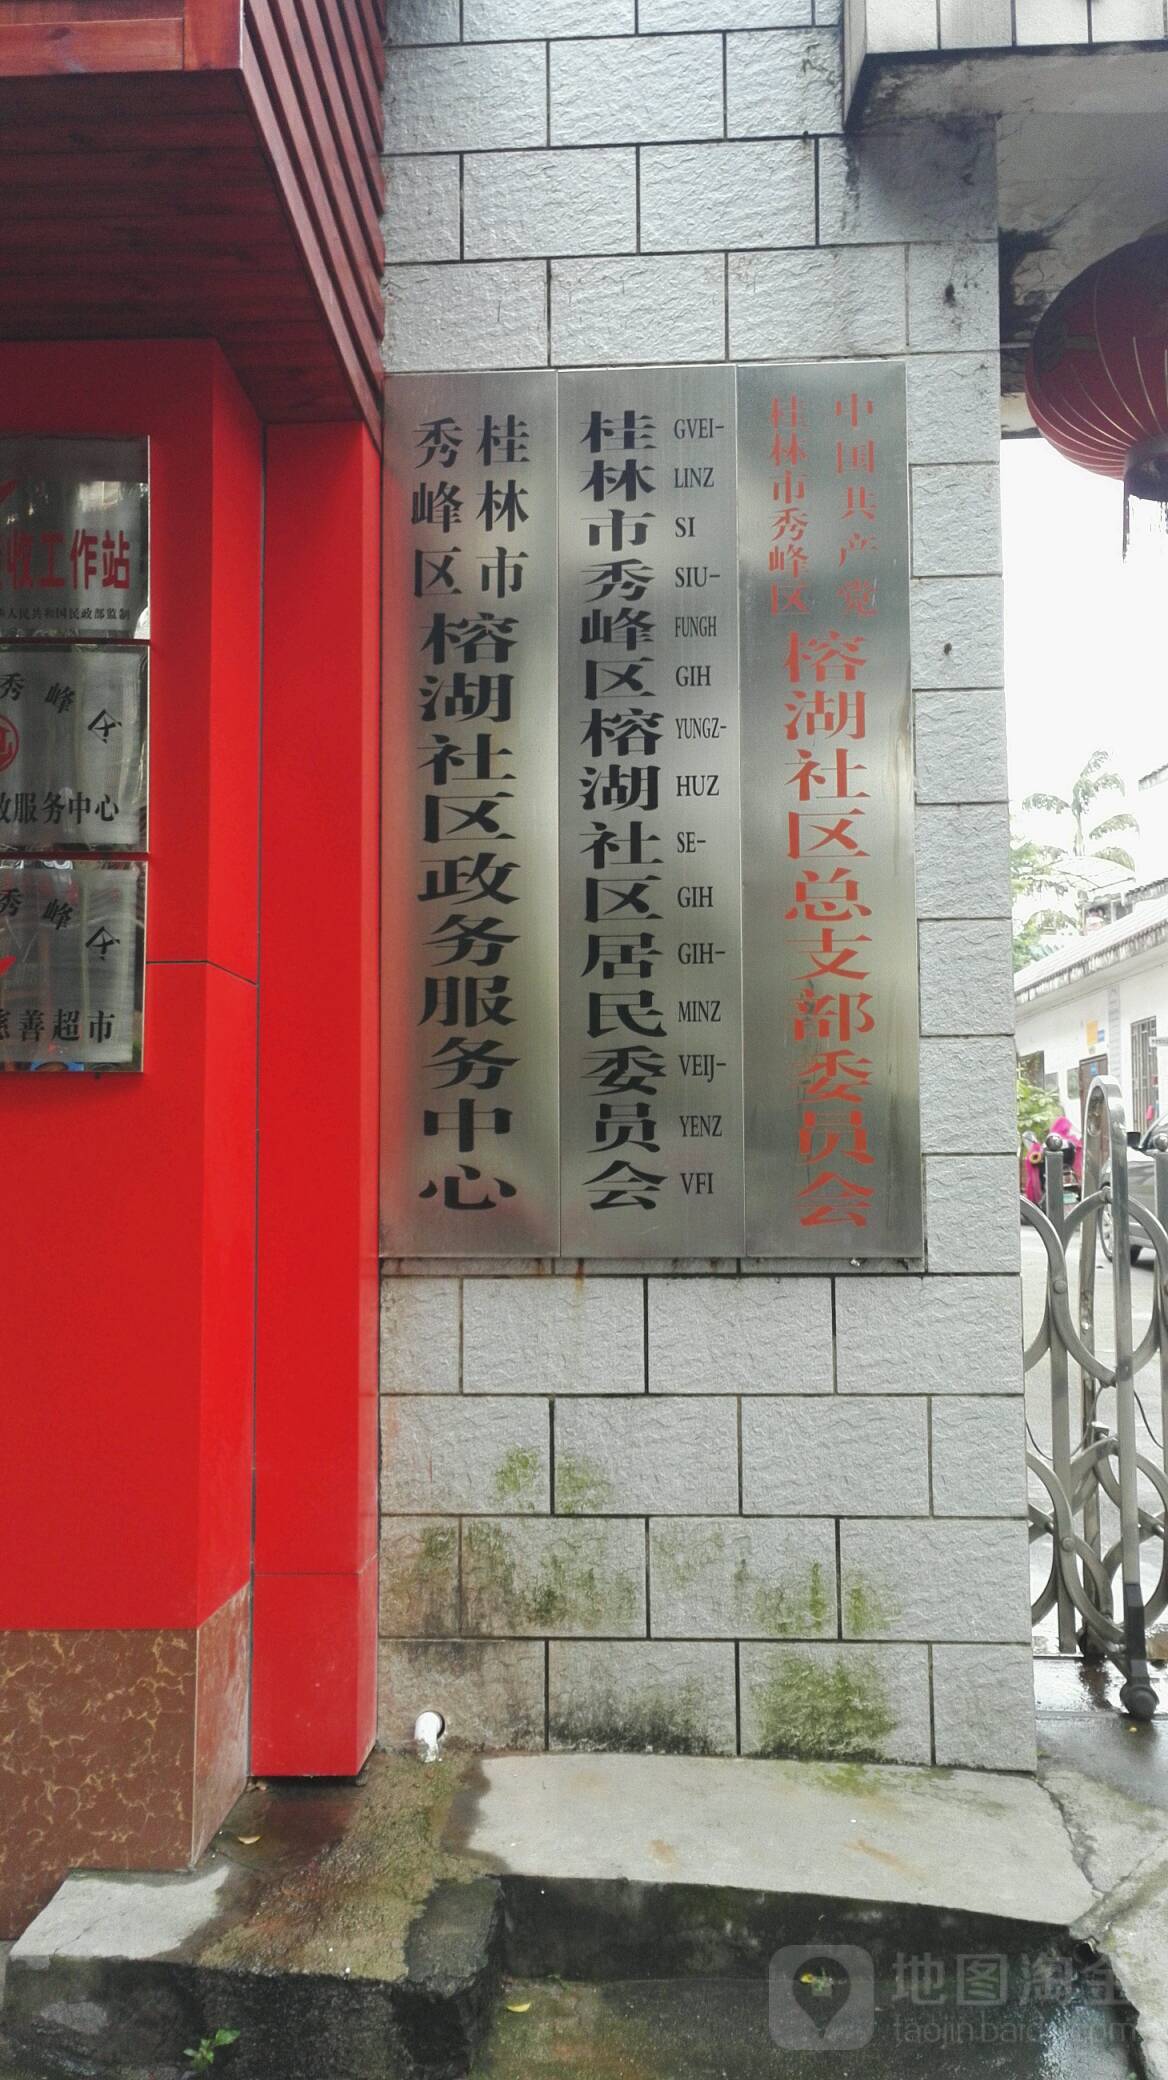 中国共产党
桂林市秀峰区
榕湖社区总支部委员会
桂林市秀峰区榕湖社区居民委员会
GVEI-
LINZ
SI
SIU-
FUNGH
GIH
YUNGZ-
HUZ
SE-
GIH
GIH-
MINZ
VEIJ-
YENZ
VFI
桂林市
秀峰区
榕湖社区政务服务中心
收工作站
人民共和国民政部监制
秀峰区
服务中心
秀峰区
慈善超市
地图淘金
taojin.baidu.com